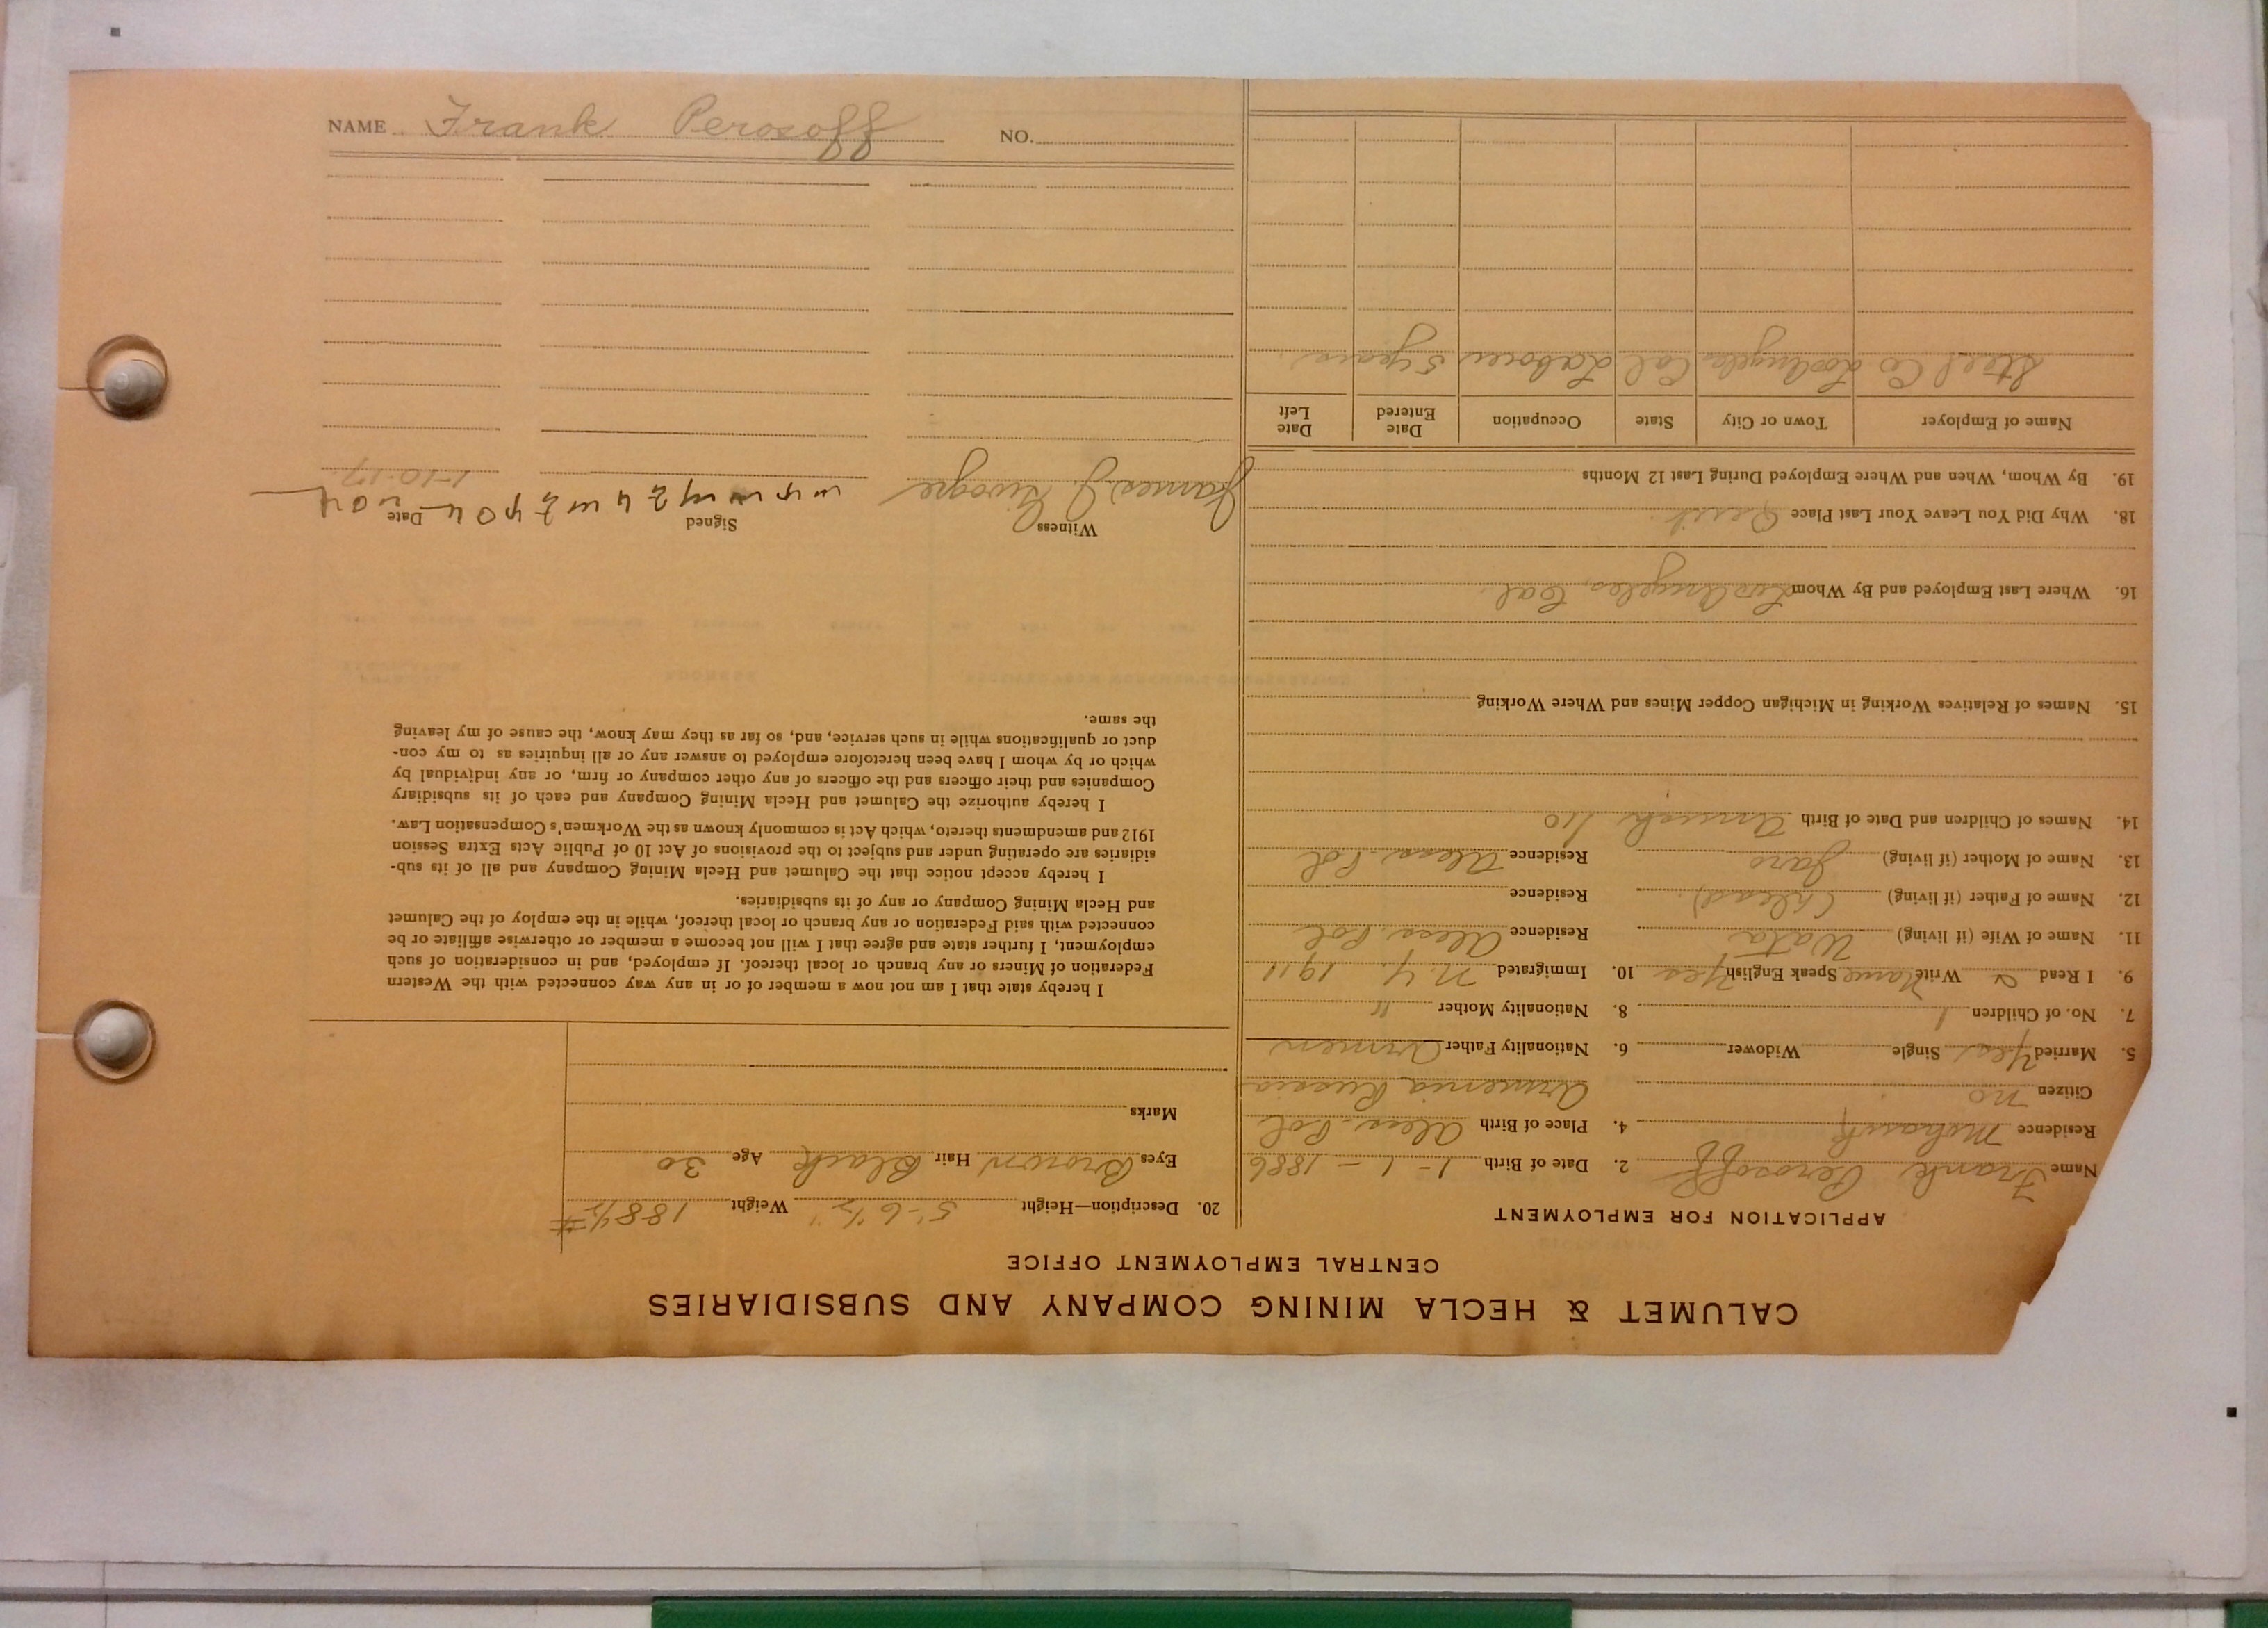 NAME Frank Perosoff NO.
CALUMET & HECLA MINING COMPANY AND SUBSIDIARIES
CENTRAL EMPLOYMENT OFFICE
APPLICATION FOR EMPLOYMENT
Name Frank Perosoff 2. Date of Birth 1-1-1886
Residence Mohawk 4. Place of Birth Alex. Pol
Citizen no Armenia Russia
5. Married Yes Single Widower 6. Nationality Father Armen
7. No. of Children 1 8. Nationality Mother "
9. I Read & Write Name Speak English Yes 10. Immigrated N.Y. 1911
11. Name of Wife (if living) Wata Residence Alex. Pol
12. Name of Father (if living) Residence
13. Name of Mother (if living) Jaro Residence Alex. Pol
14. Names of Children and Date of Birth 10
15. Names of Relatives Working in Michigan Copper Mines and Where Working
16. Where Last Employed and By Whom Los Angeles, Cal.
18. Why Did You Leave Your Last Place
19. By Whom, When and Where Employed During Last 12 Months
Name of Employer Town or City State Occupation Date Entered Date Left
Steel Co Los Angeles Cal Laborer 5 years
20. Description—Height 5'-6½" Weight 188½ #
Eyes Brown Hair Black Age 30
Marks
I hereby state that I am not now a member of or in any way connected with the Western
Federation of Miners or any branch or local thereof. If employed, and in consideration of such
employment, I further state and agree that I will not become a member or otherwise affiliate or be
connected with said Federation or any branch or local thereof, while in the employ of the Calumet
and Hecla Mining Company or any of its subsidiaries.
I hereby accept notice that the Calumet and Hecla Mining Company and all of its sub-
sidiaries are operating under and subject to the provisions of Act 10 of Public Acts Extra Session
1912 and amendments thereto, which Act is commonly known as the Workmen's Compensation Law.
I hereby authorize the Calumet and Hecla Mining Company and each of its subsidiary
Companies and their officers and the officers of any other company or firm, or any individual by
which or by whom I have been heretofore employed to answer any or all inquiries as to my con-
duct or qualifications while in such service, and, so far as they may know, the cause of my leaving
the same.
Witness Signed Date
James J. 1-10-17